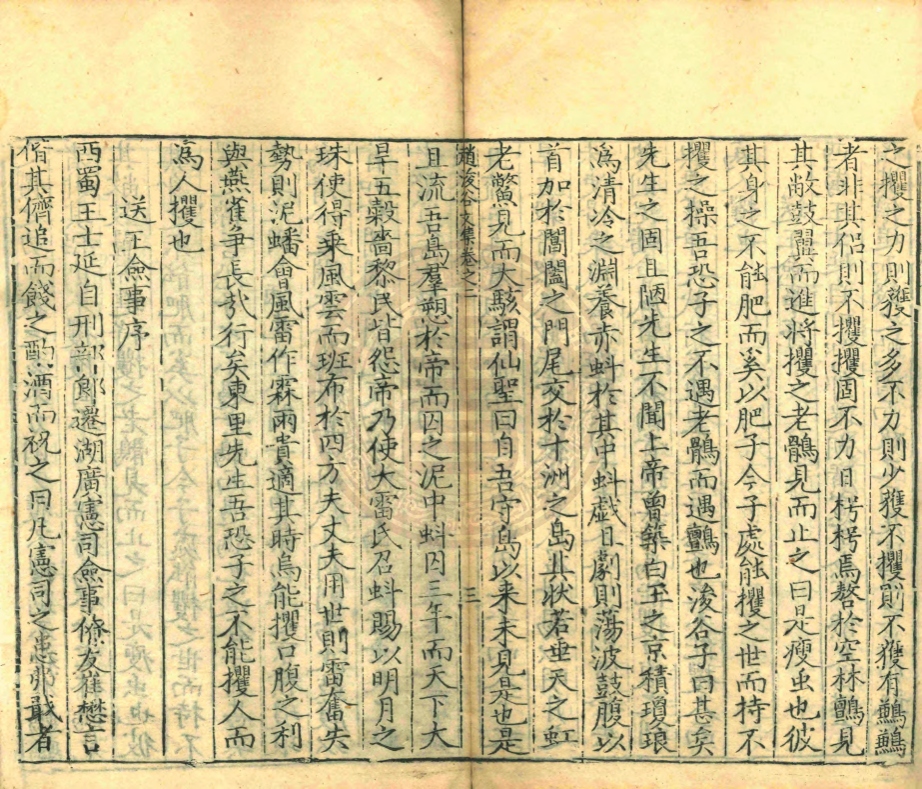 之攫之力則獲之多不力則少獲不攫則不獲有鸕鸕
者非其侶則不攫攫固不力日枵枵焉嗸於空林鸇見
其敝鼓翼而進將攫之老鶻見而止之曰是瘦虫也彼
其身之不能肥而奚以肥子今子處能攫之世而持不
攫之操吾恐子之不遇老鶻而遇鸇也浚谷子曰甚矣
先生之固且陋先生不聞上帝曾築白玉之京積瓊琅
爲清冷之淵養赤蚪於其中蚪戯日劇則蕩波鼓腹以
首加於閶闔之門尾交於十洲之島其狀若垂天之虹
老鱉見而大駭謂仙聖曰自吾守島以来未見是也是
趙浚谷文集卷之二 三
且流吾島羣愬於帝而囚之泥中蚪囚三年而天下大
旱五穀嗇黎民皆怨帝乃使大雷氏召蚪賜以明月之
珠使得乘風雲而班布於四方夫丈夫用世則雷奮失
勢則泥蟠會風雷作霖雨貴適其時烏能攫口腹之利
與燕雀爭長㢤行矣東里先生吾恐子之不能攫人而
爲人攫也
送王僉事序
西蜀王士延自刑部郎遷湖廣憲司僉事僚友崔懋言
偕其儕追而餞之酌酒而祝之曰凡憲司之患弗敢者